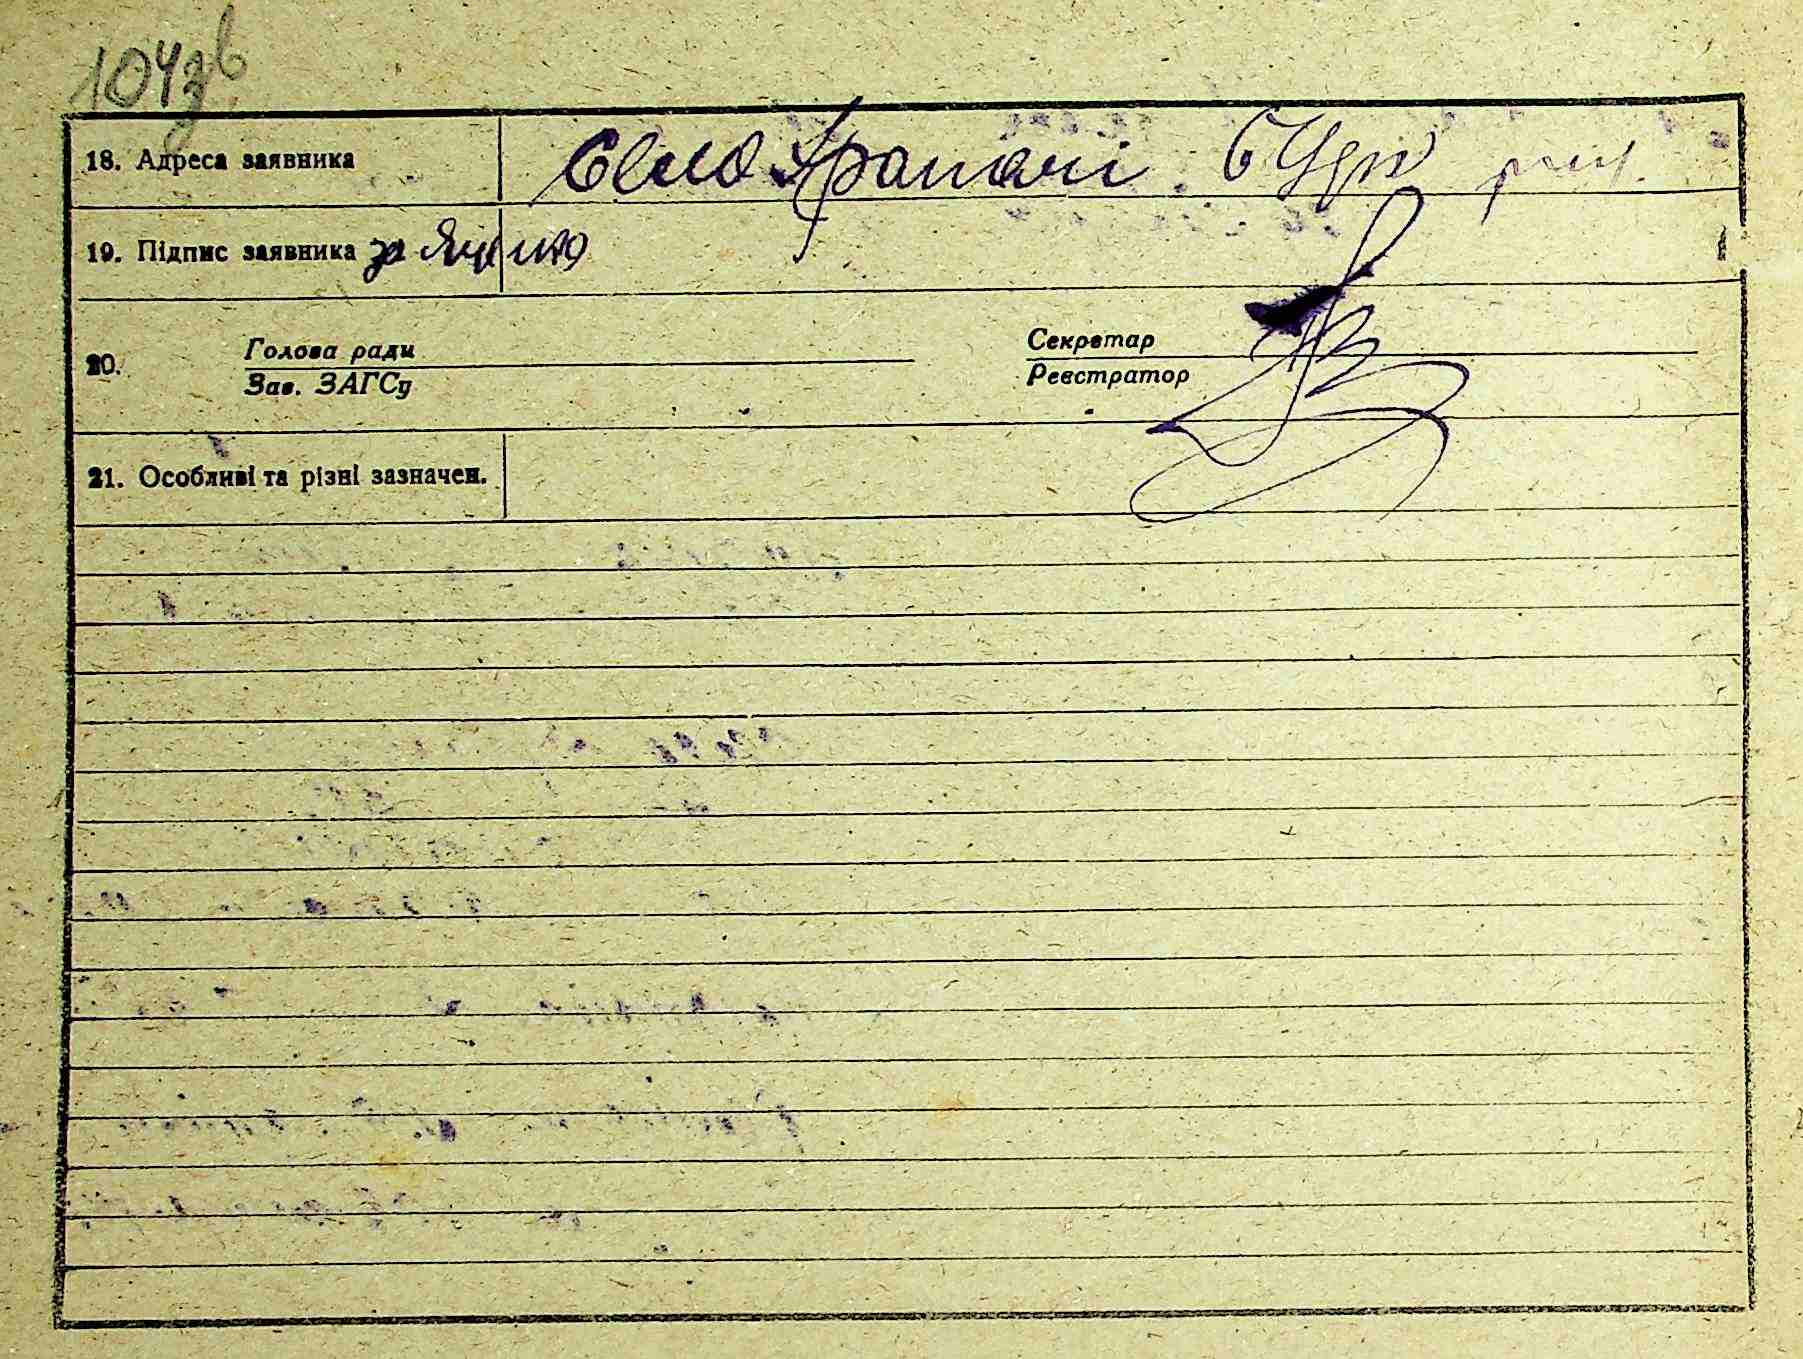 104зв
18. Адреса заявника село Храпачі
19. Підпис заявника за
20. Голова ради Секретар
Зав. ЗАГСу Реєстратор
21. Особливі та різні зазначен.